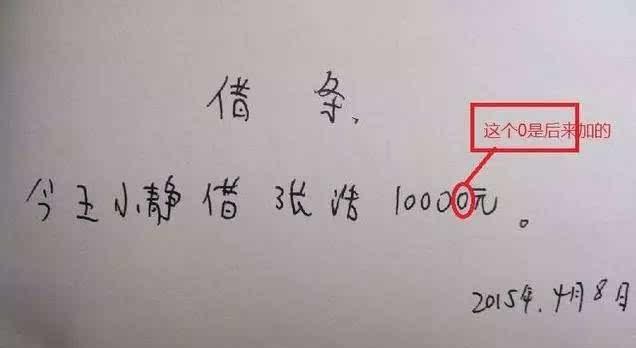 借 条
这个0是后来加的
今王小静借 张浩 10000元。
2015年.4月8日